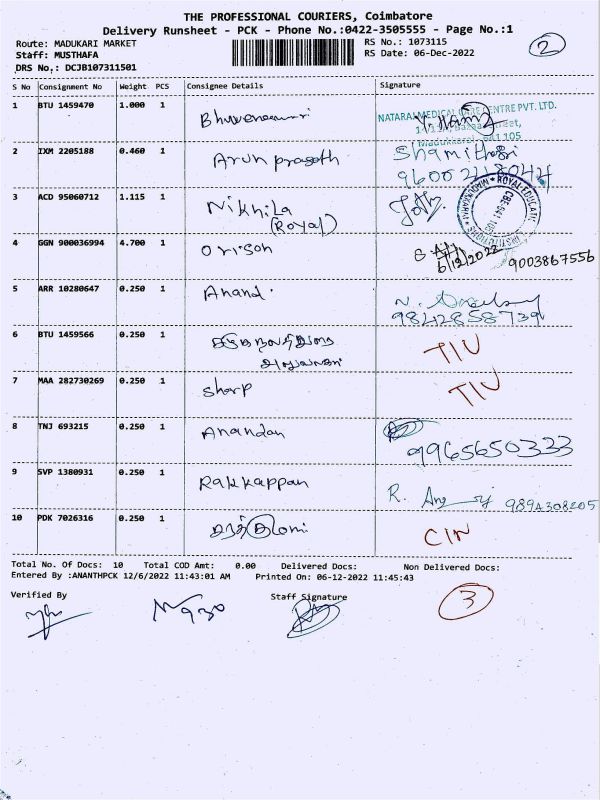 THE PROFESSIONAL COURIERS, Coimbatore
Delivery Runsheet - PCK - Phone No.:0422-3505555 - Page No.:1
Route: MADUKARI MARKET
Staff: MUSTHAFA
DRS No.: DCJB107311501
RS No.: 1073115
RS Date: 06-Dec-2022
2
S No Consignment No Weight PCS Consignee Details Signature
1 BTU 1459470 1.000 1 Bhuvaneswari
NATARAJ MEDICAL CARE CENTRE PVT. LTD.
2 IXM 2205188 0.460 1 Arun prasath
9600218044
3 ACD 95060712 1.115 1 Nikhila
(Royal)
4 GGN 900036994 4.700 1 Orison
6/12/2022 9003867556
5 ARR 10280647 0.250 1 Anand.
9842858739
6 BTU 1459566 0.250 1
7 MAA 282730269 0.250 1 Sharp
8 TNJ 693215 0.250 1 Anandan
9965650333
9 SVP 1380931 0.250 1 Rakkappan
R. 9894308205
10 PDK 7026316 0.250 1
Total No. Of Docs: 10 Total COD Amt: 0.00 Delivered Docs: Non Delivered Docs:
Entered By :ANANTHPCK 12/6/2022 11:43:01 AM Printed On: 06-12-2022 11:45:43
Verified By Staff Signature
3